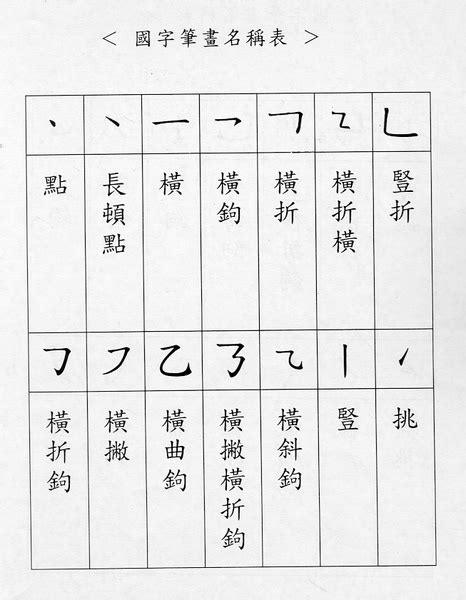 ＜ 國字筆畫名稱表 ＞
丶 ㇔ 一 ㇖ ㇕ ㇅ ㇄
點
長頓點
橫
橫鉤
橫折
橫折橫
豎折
㇆ ㇇ 乙 ㇡ ⺄ 丨 ㇀
橫折鉤
橫撇
橫曲鉤
橫撇橫折鉤
橫斜鉤
豎
挑